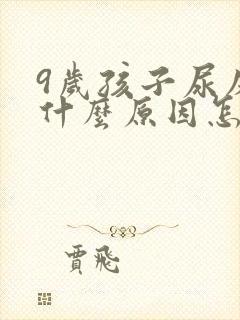 9歲孩子尿
什麼原因怎
賈飛